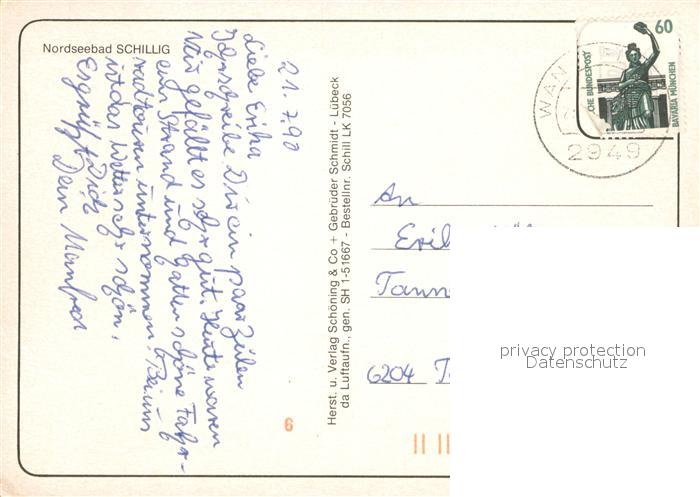 Nordseebad SCHILLIG
21.7.90
Liebe Erika
Ich schreibe Dir ein paar Zeilen
Mir gefällt es sehr gut. Heute waren
am Strand und hatten schöne Fahr-
radtouren unternommen. Bei uns
ist das Wetter sehr schön.
Es grüßt Dich
Dein Manfred
Herst. u. Verlag Schöning & Co + Gebrüder Schmidt - Lübeck
da Luftaufn., gen. SH 1-51667 - Bestellnr. Schill LK 7056
60
CHE BUNDESPOST
BAVARIA MÜNCHEN
WAN
2949
An
Tann
6204 T
6
privacy protection
Datenschutz